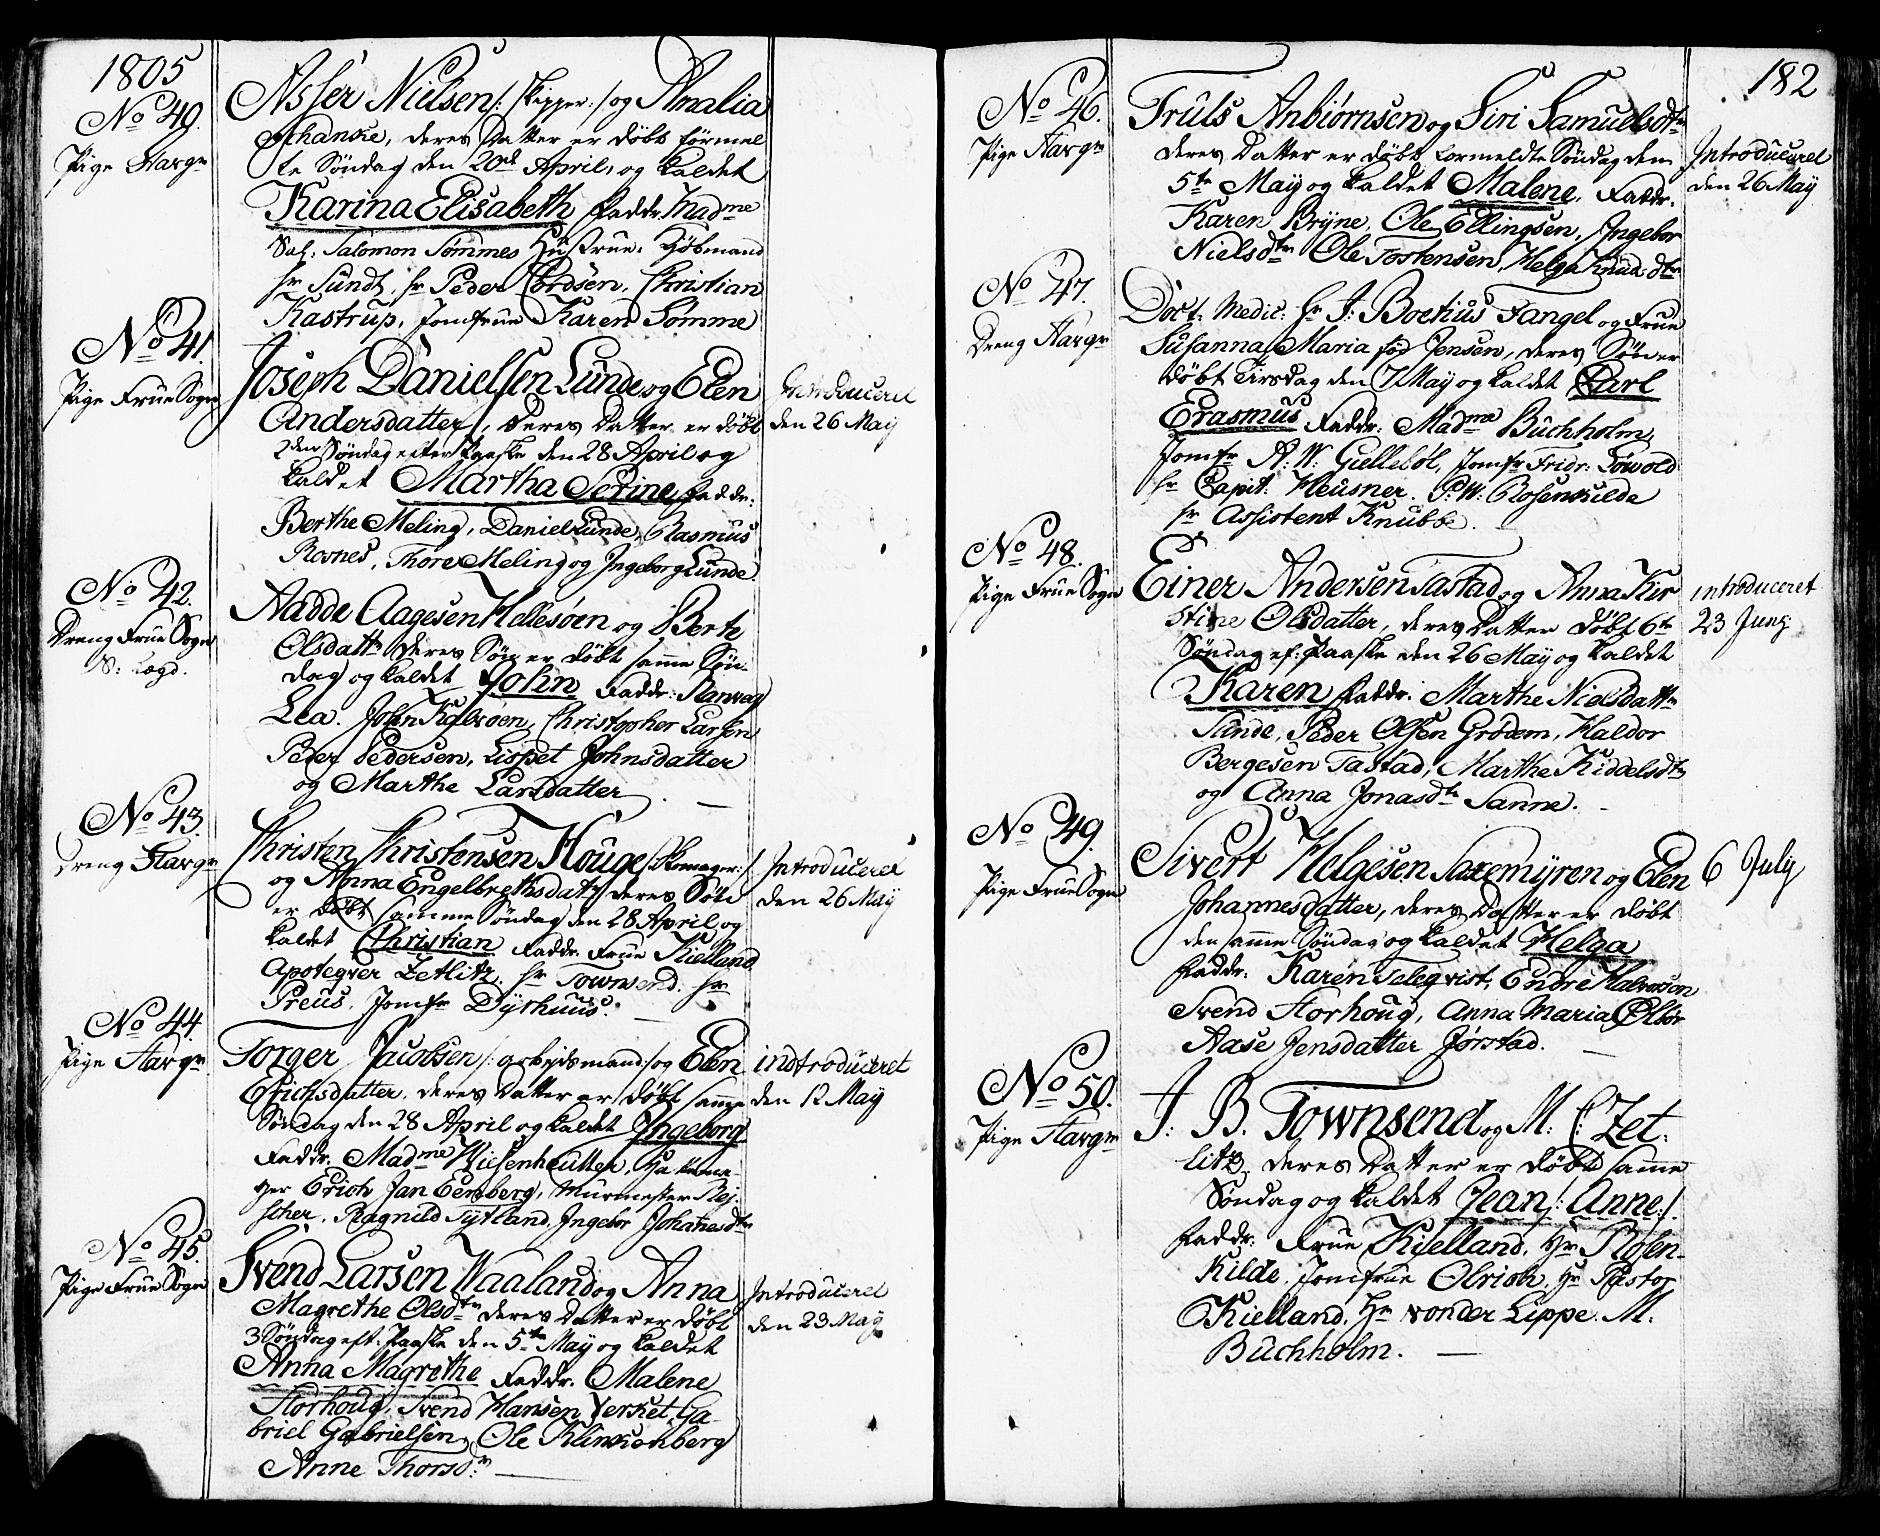 1805
No 40.
Pige Stavgr
Asser Nielsen /: Skipper :/ og Amalia
Schanke, deres Datter er døbt förmel
te Söndag den 20de April, og kaldet
Karina Elisabeth Faddr. Madme
Sal. Salomon Sømmes Hustrue. Kjøbmand
Hr Sundt, Hr Peder Cordsen, Christian
Kastrup, Jomfrue Karen Sømme
No 41.
Pige Frue Sogn
Joseph Danielsen Lunde og Elen
Andersdatter, deres Datter er døbt
2den Søndag efter Paaske den 28 April og
kaldet Martha Serine, Faddr:
Berthe Meling, Daniel Lunde, Rasmus
Thore Meling og Ingeborg Lunde.
Introduceret
den 26 May
No 42.
Dreng Frue Sogn
S: Lægd.
Aadde Aagesen Hellesøen og Berte
Olsdattr deres Søn er døbt samme Søn-
dag og kaldet John Faddr:
Lea. John Christopher Larsen
Peder Pedersen, Lispet Johnsdatter
og Marthe Larsdatter.
No 43.
Dreng Stavgr
Christen Christensen Houge /: Skomager :/
og Anna Engelbrethsdatr deres Søn
er døbt samme Søndag den 28 April og
kaldet Christian Faddr. Frue Kielland
Apoteqver Zetlitz. Hr Townsend. Hr
Preus. Jomfr Dythuus.
Introduceret
den 26 May
No 44.
Pige Stavgr
Torger Jacobsen /: arbejdsmand :/ og Elen
Erichsdatter, deres Datter er døbt samme
Søndag den 28 April og kaldet Ingeborg
Faddr. Madme Wiesenheutter,
ger Erich Jan Eenberg, Muurmester Rei-
scher. Ragnild Tytland, Ingebor Johanesdtr
indtroduceret
den 12 May
No 45.
Pige Frue Sogn
Svend Larsen Waaland og Anna
Magrethe Olsdtr deres Datter er døbt
3 Søndag eft: Paaske den 5te May og kaldet
Anna Magrethe Faddr. Malene
Storhoug, Svend Hansen Verket, Ga-
briel Gabrielsen, Ole Klinkenberg
Anne Thorsdr.
Introduceret
den 23 May
182
No 46.
Pige Stavgr
Truls Anbiørnsen og Siri Samuelsdtr
deres Datter er døbt formeldte Søndag den
5te May og kaldet Malene. Faddr.
Karen Bryne, Ole Ellingsen, Ingebor
Nielsdtr Ole Tostensen, Helga Knudsdtr
Introduceret
den 26 May
No 47.
Dreng Stavgr
Doct: Medic: Hr J: Boetius Fangel og Frue
Susanna Maria fød Jensen, deres Søn er
døbt Tirsdag den 7 May og kaldet Carl
Erasmus Faddr: Madme Buchholm,
Jomfr A: W: Giellebøl, Jomfr Fridr: Løwold
Hr Capit: Heusner. P: W: Rosenkilde
Hr Assistent Knubbe.
No 48.
Pige Frue Sogn
Einer Andersen Tastad og Anna Kir
stine Olsdatter, deres Datter døbt 6te
Søndag ef: Paaske den 26 May og kaldet
Karen Faddr. Marthe Nielsdattr
Sunde, Peder Olsen Grødem, Haldor
Bergesen Tastad, Marthe Kiddelsdtr
og Anna Jonasdtr Sanne.
introduceret
23 Junj
No 49.
Pige Frue Sogn
Sivert Helgesen Saxemyren og Elen
Johannesdatter, deres Datter er døbt
den samme Søndag og kaldet Helga
Faddr. Karen Teleqvist, Endre Halvorson
Svend Storhoug, Anna Maria
Aase Jensdatter Jørstad.
6 July
No 50.
Pige Stavgr
J: B. Townsend og M: C: Zet-
litz, deres Datter er døbt samme
Søndag og kaldet Jean /: Anne :/
Faddr: Frue Kielland, Hr Rosen-
kilde, Jomfrue Olrich, Hr Pastor
Kielland, Hr vonder Lippe. M:
Buchholm.